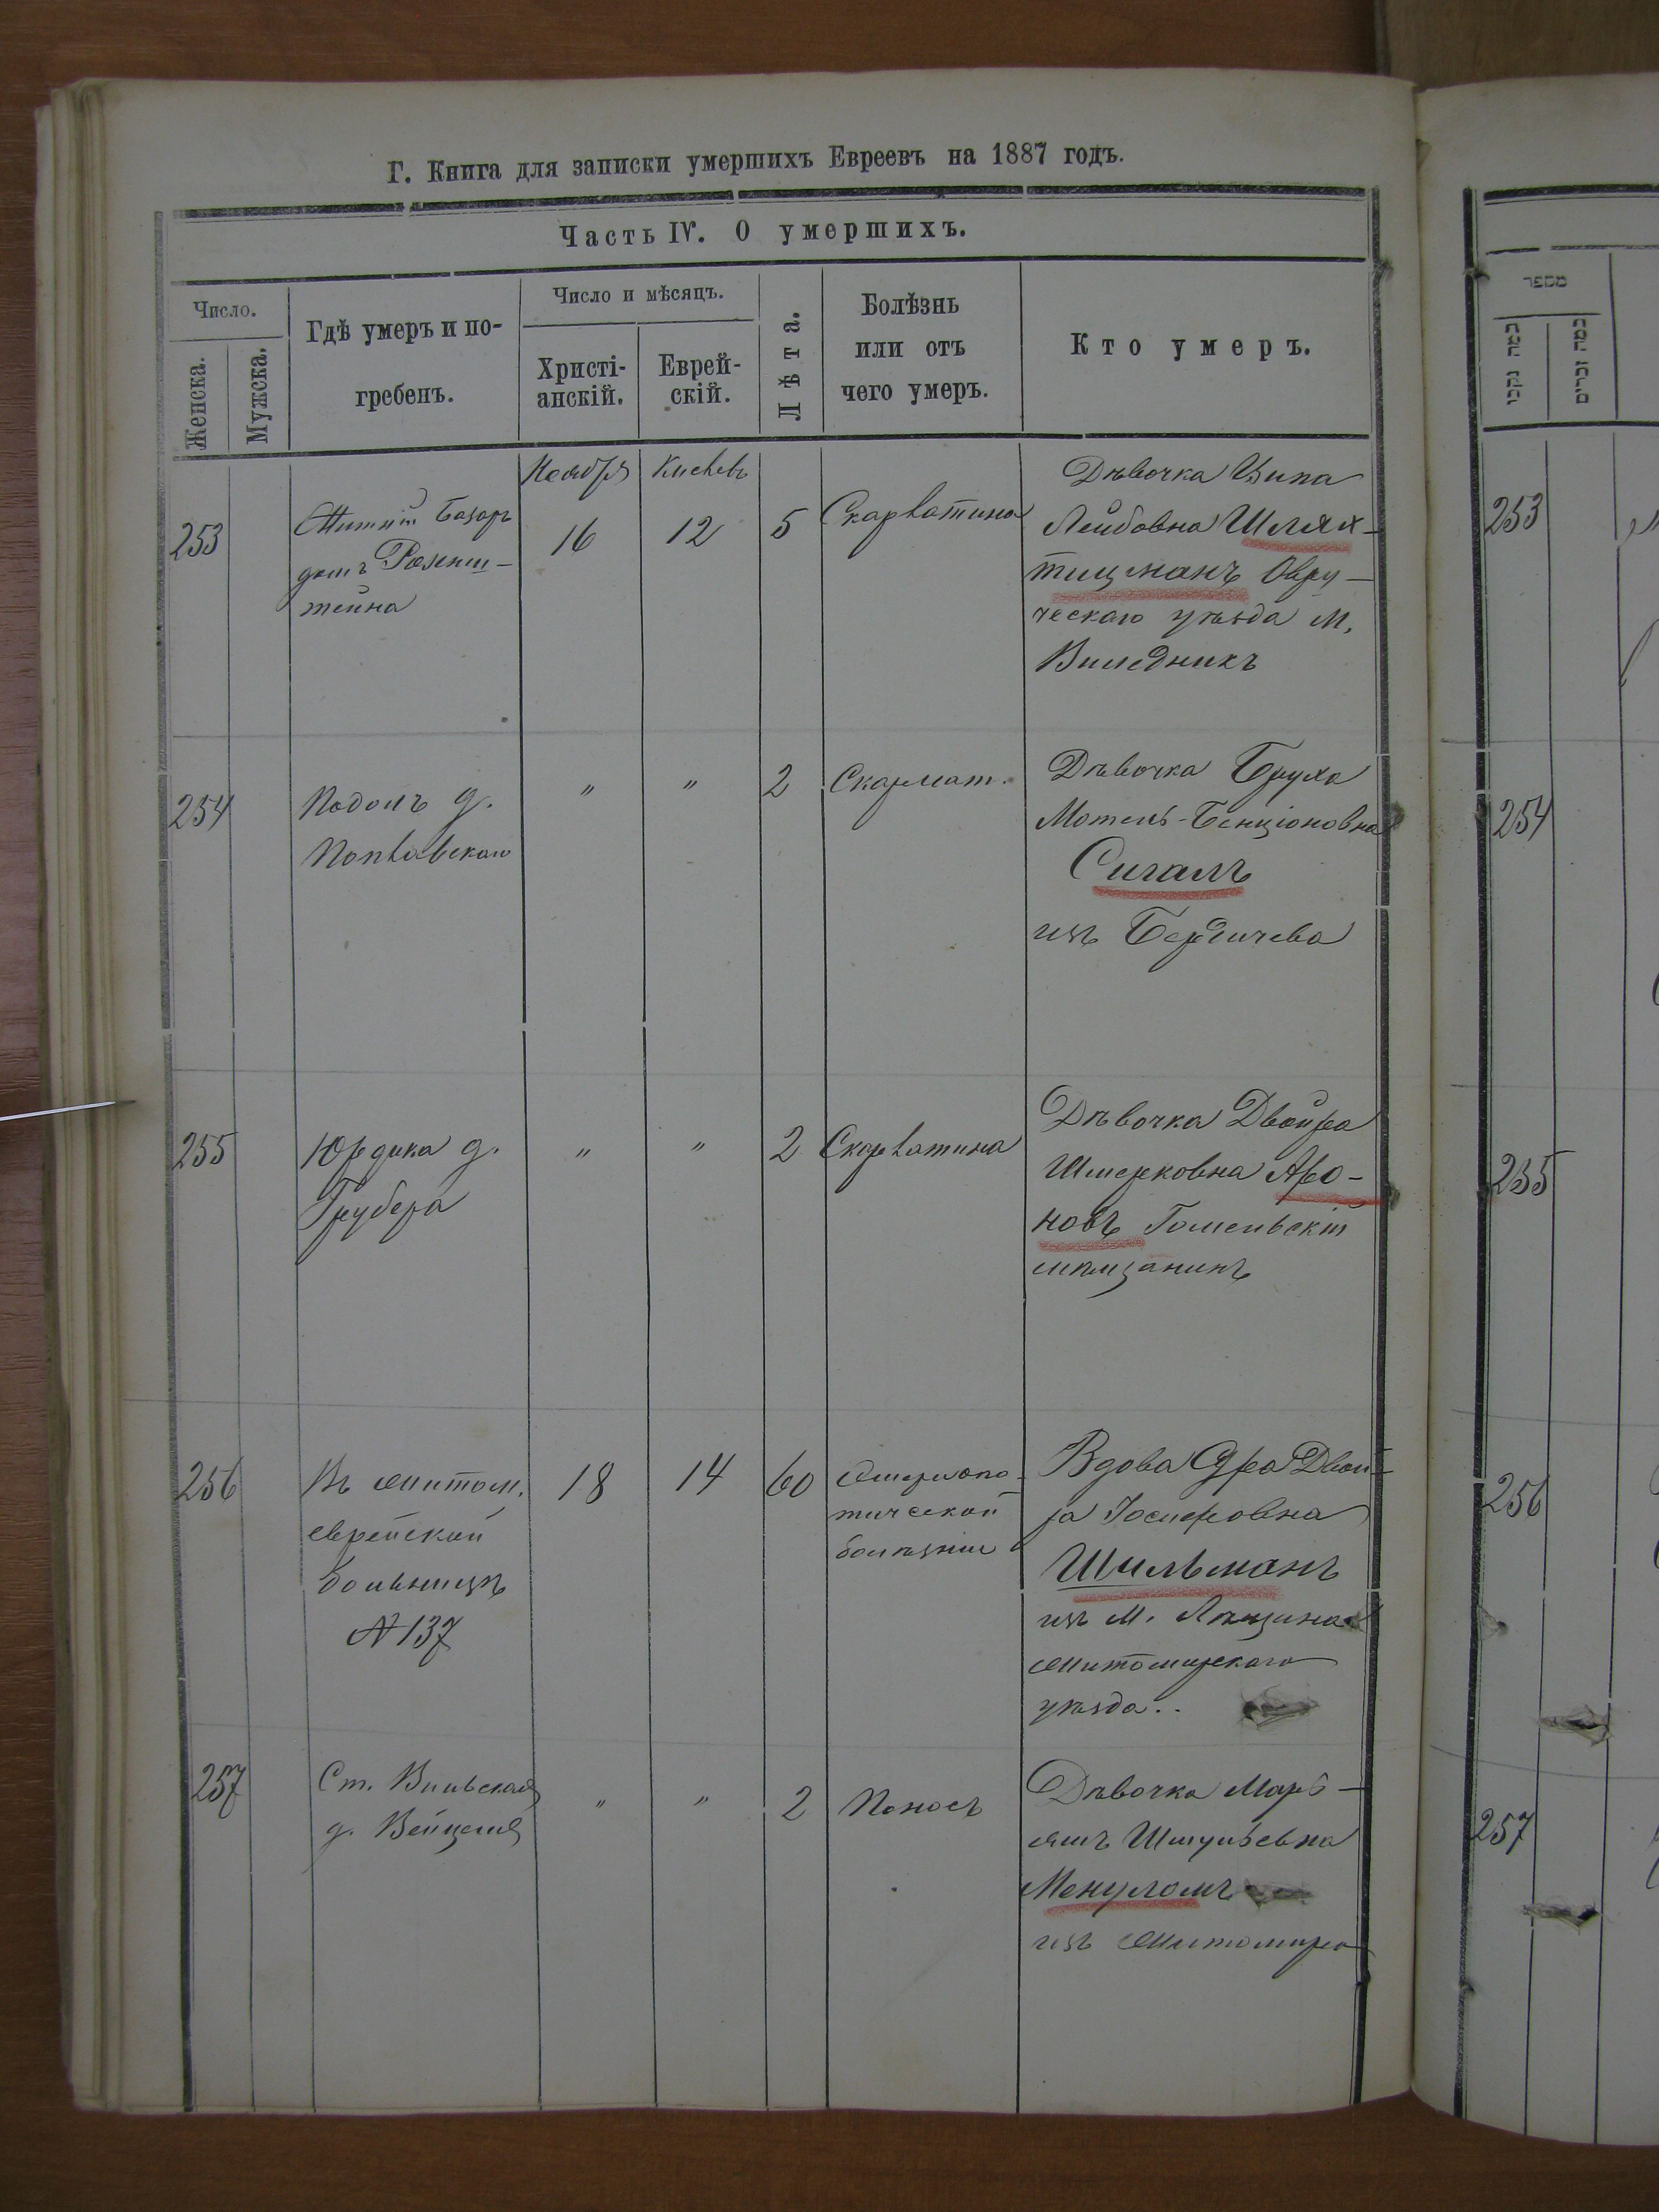 Г. Книга для записки умершихъ Евреевъ на 1887 годъ.
Часть IV. О умершихъ.
Число.
Женска.
Мужска.
Гдѣ умеръ и по-
гребенъ.
Число и мѣсяцъ.
Христі-
анскій.
Еврей-
скій.
Лѣта.
Болѣзнь
или отъ
чего умеръ.
Кто умеръ.
Ноябрь
Кислевъ
253
Житній Базаръ
домъ
тейна
16
12
5
Скарлатина
Дѣвочка Ципа
Лейбовна Шлях-
тицманъ Овру-
ческаго уѣзда М.
Виледникъ
254
Подолъ д.
"
"
2
Скарлат.
Дѣвочка Бруха
Мотель-Бенціоновна
Сигалъ
изъ Бердичева
255
Юрдика д.
Грубера
"
"
2
Скарлатина
Дѣвочка Двойра
Шмерковна Аро-
новъ Гомельскій
мѣщанинъ
256
Въ житом.
еврейской
больницѣ
№ 137
18
14
60
болѣзни
Вдова Сура Двой-
ра Іосифовна
Шильманъ
изъ М.
житомирскаго
уѣзда..
257
Ст. Вильская
д. Вейцеля
"
"
2
Поносъ
Дѣвочка Марь-
ямъ Шмульевна
изъ Житомира
מספר
כמה נקבו
כמה זכרים
253
254
255
256
257